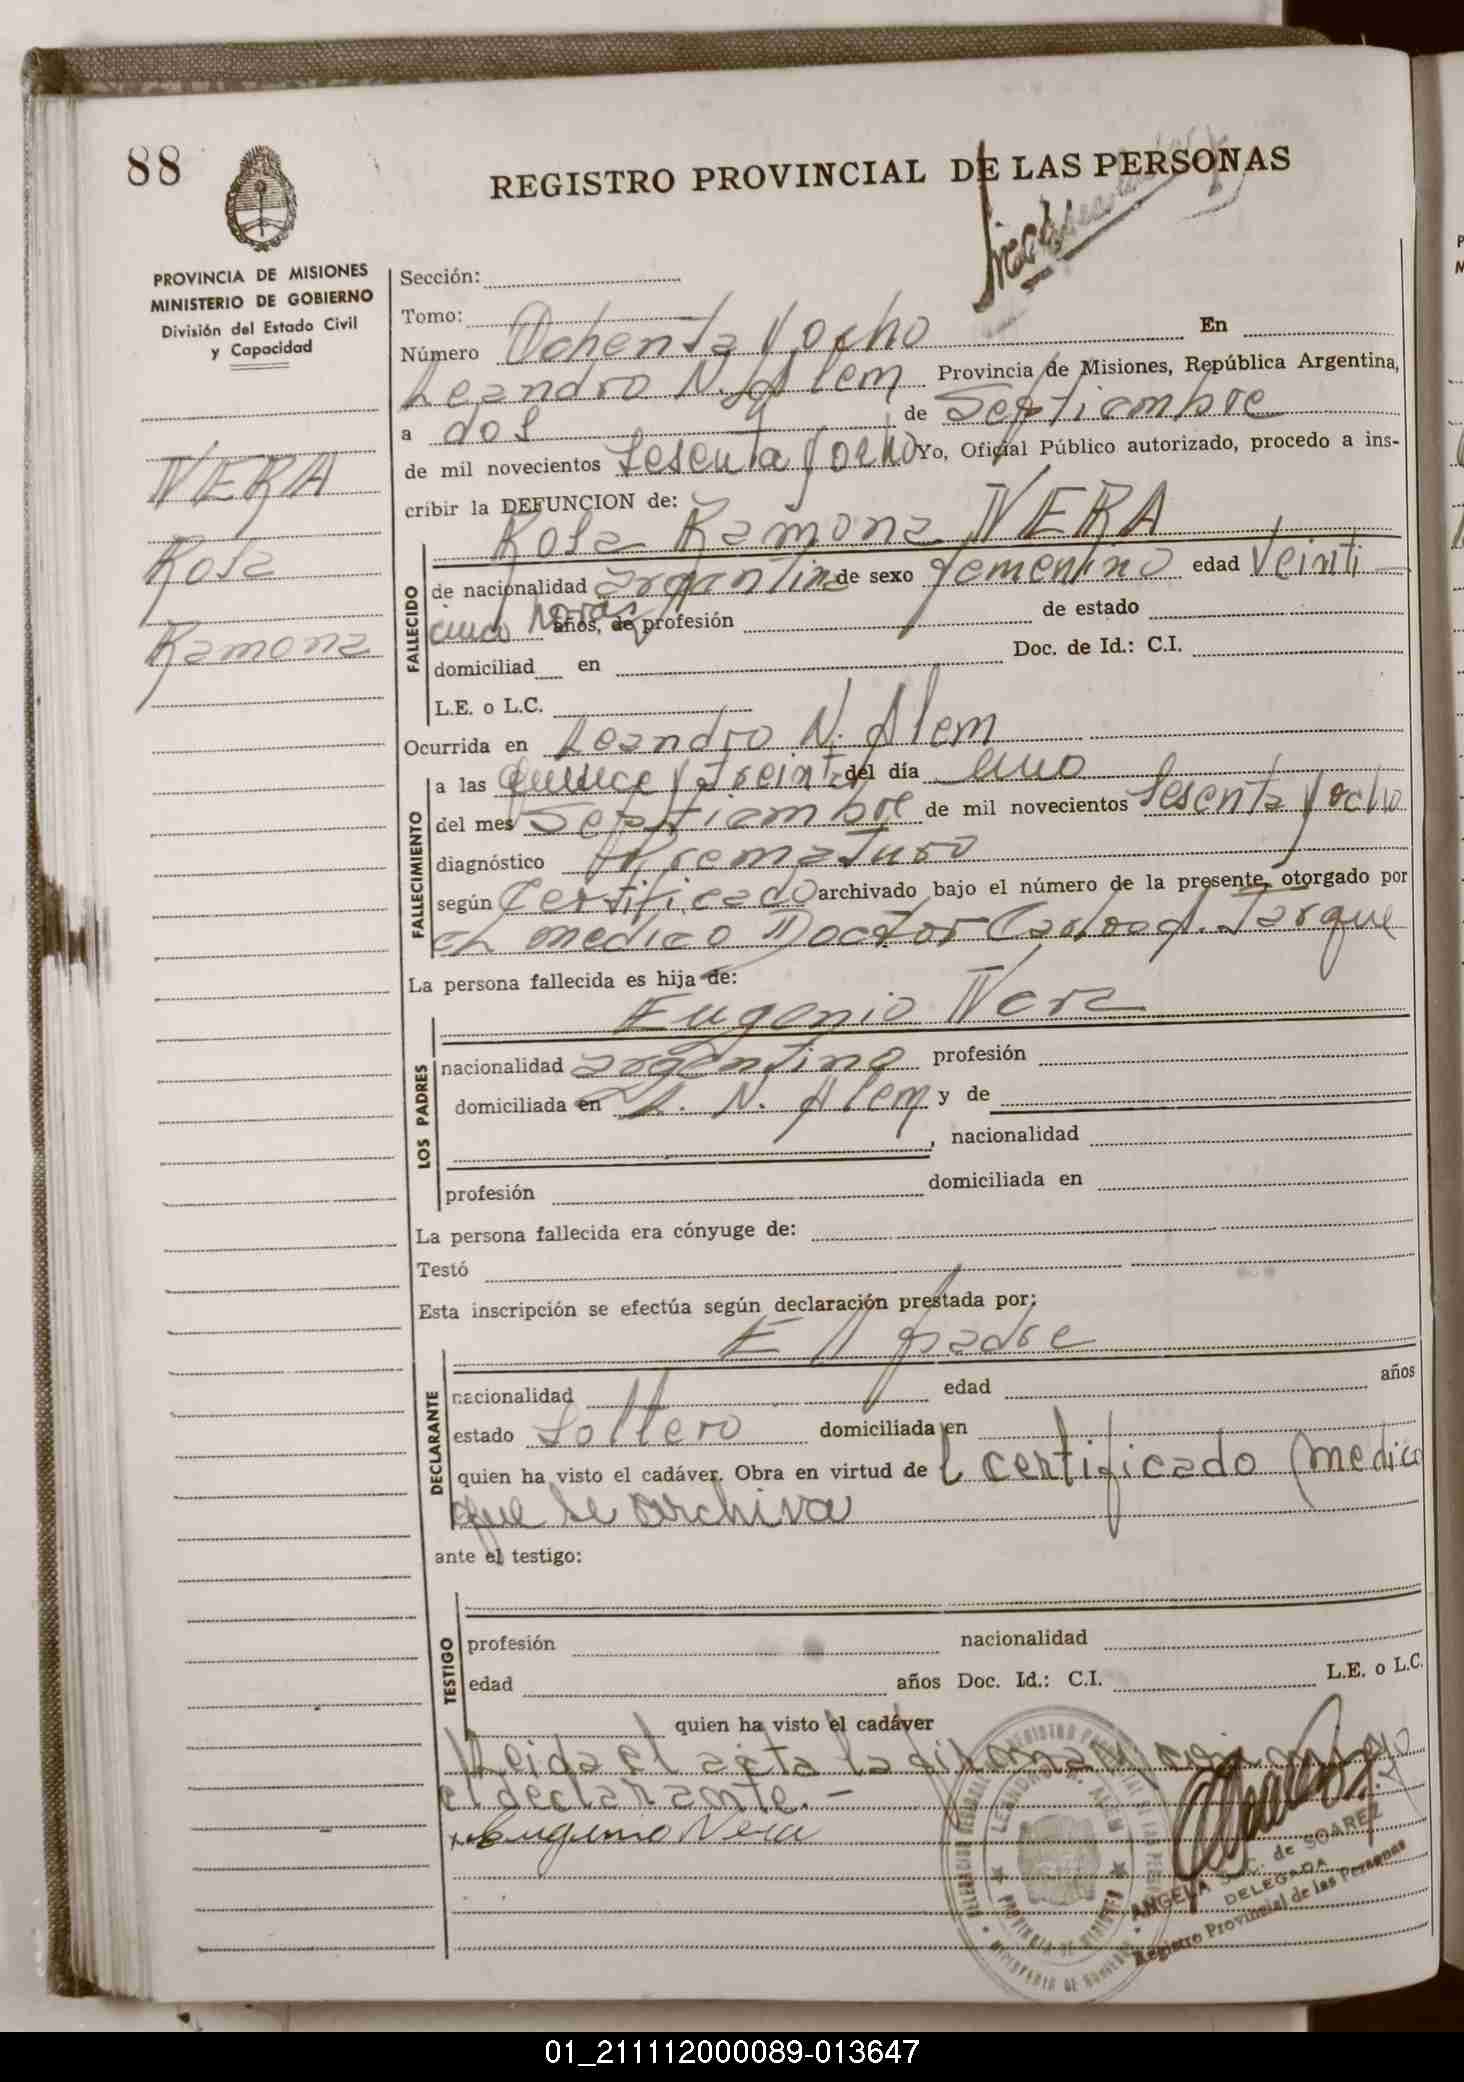 88
REGISTRO PROVINCIAL DE LAS PERSONAS
PROVINCIA DE MISIONES
MINISTERIO DE GOBIERNO
División del Estado Civil
y Capacidad
VERA
Rosa
Ramona
Sección:
Tomo:
Número Ochenta y ocho En
Leandro N. Alem Provincia de Misiones, República Argentina,
a dos de Septiembre
de mil novecientos sesenta y ocho Yo, Oficial Público autorizado, procedo a ins-
cribir la DEFUNCION de:
Rosa Ramona VERA
FALLECIDO
de nacionalidad argentina de sexo femenino edad Veinti-
cinco horas años, de profesión de estado
domiciliad en Doc. de Id.: C.I.
L.E. o L.C.
Ocurrida en Leandro N. Alem
FALLECIMIENTO
a las quince y treinta del día uno
del mes Septiembre de mil novecientos sesenta y ocho
diagnóstico Prematuro
según Certificado archivado bajo el número de la presente, otorgado por
el medico Doctor Carlos A. Tarque
La persona fallecida es hija de:
Eugenio Vera
LOS PADRES
nacionalidad argentino profesión
domiciliada en L. N. Alem y de
, nacionalidad
profesión domiciliada en
La persona fallecida era cónyuge de:
Testó
Esta inscripción se efectúa según declaración prestada por:
El padre
DECLARANTE
nacionalidad edad años
estado Soltero domiciliada en
quien ha visto el cadáver. Obra en virtud de l certificado medico
que se archiva
ante el testigo:
TESTIGO
profesión nacionalidad
edad años Doc. Id.: C.I. L.E. o L.C.
quien ha visto el cadáver
Leida el acta la firman
el declarante.-
Eugenio Vera
LEANDRO N. ALEM
PROVINCIA DE MISIONES
ANGELA S. C. de SOAREZ
DELEGADA
Registro Provincial de las Personas
01_211112000089-013647